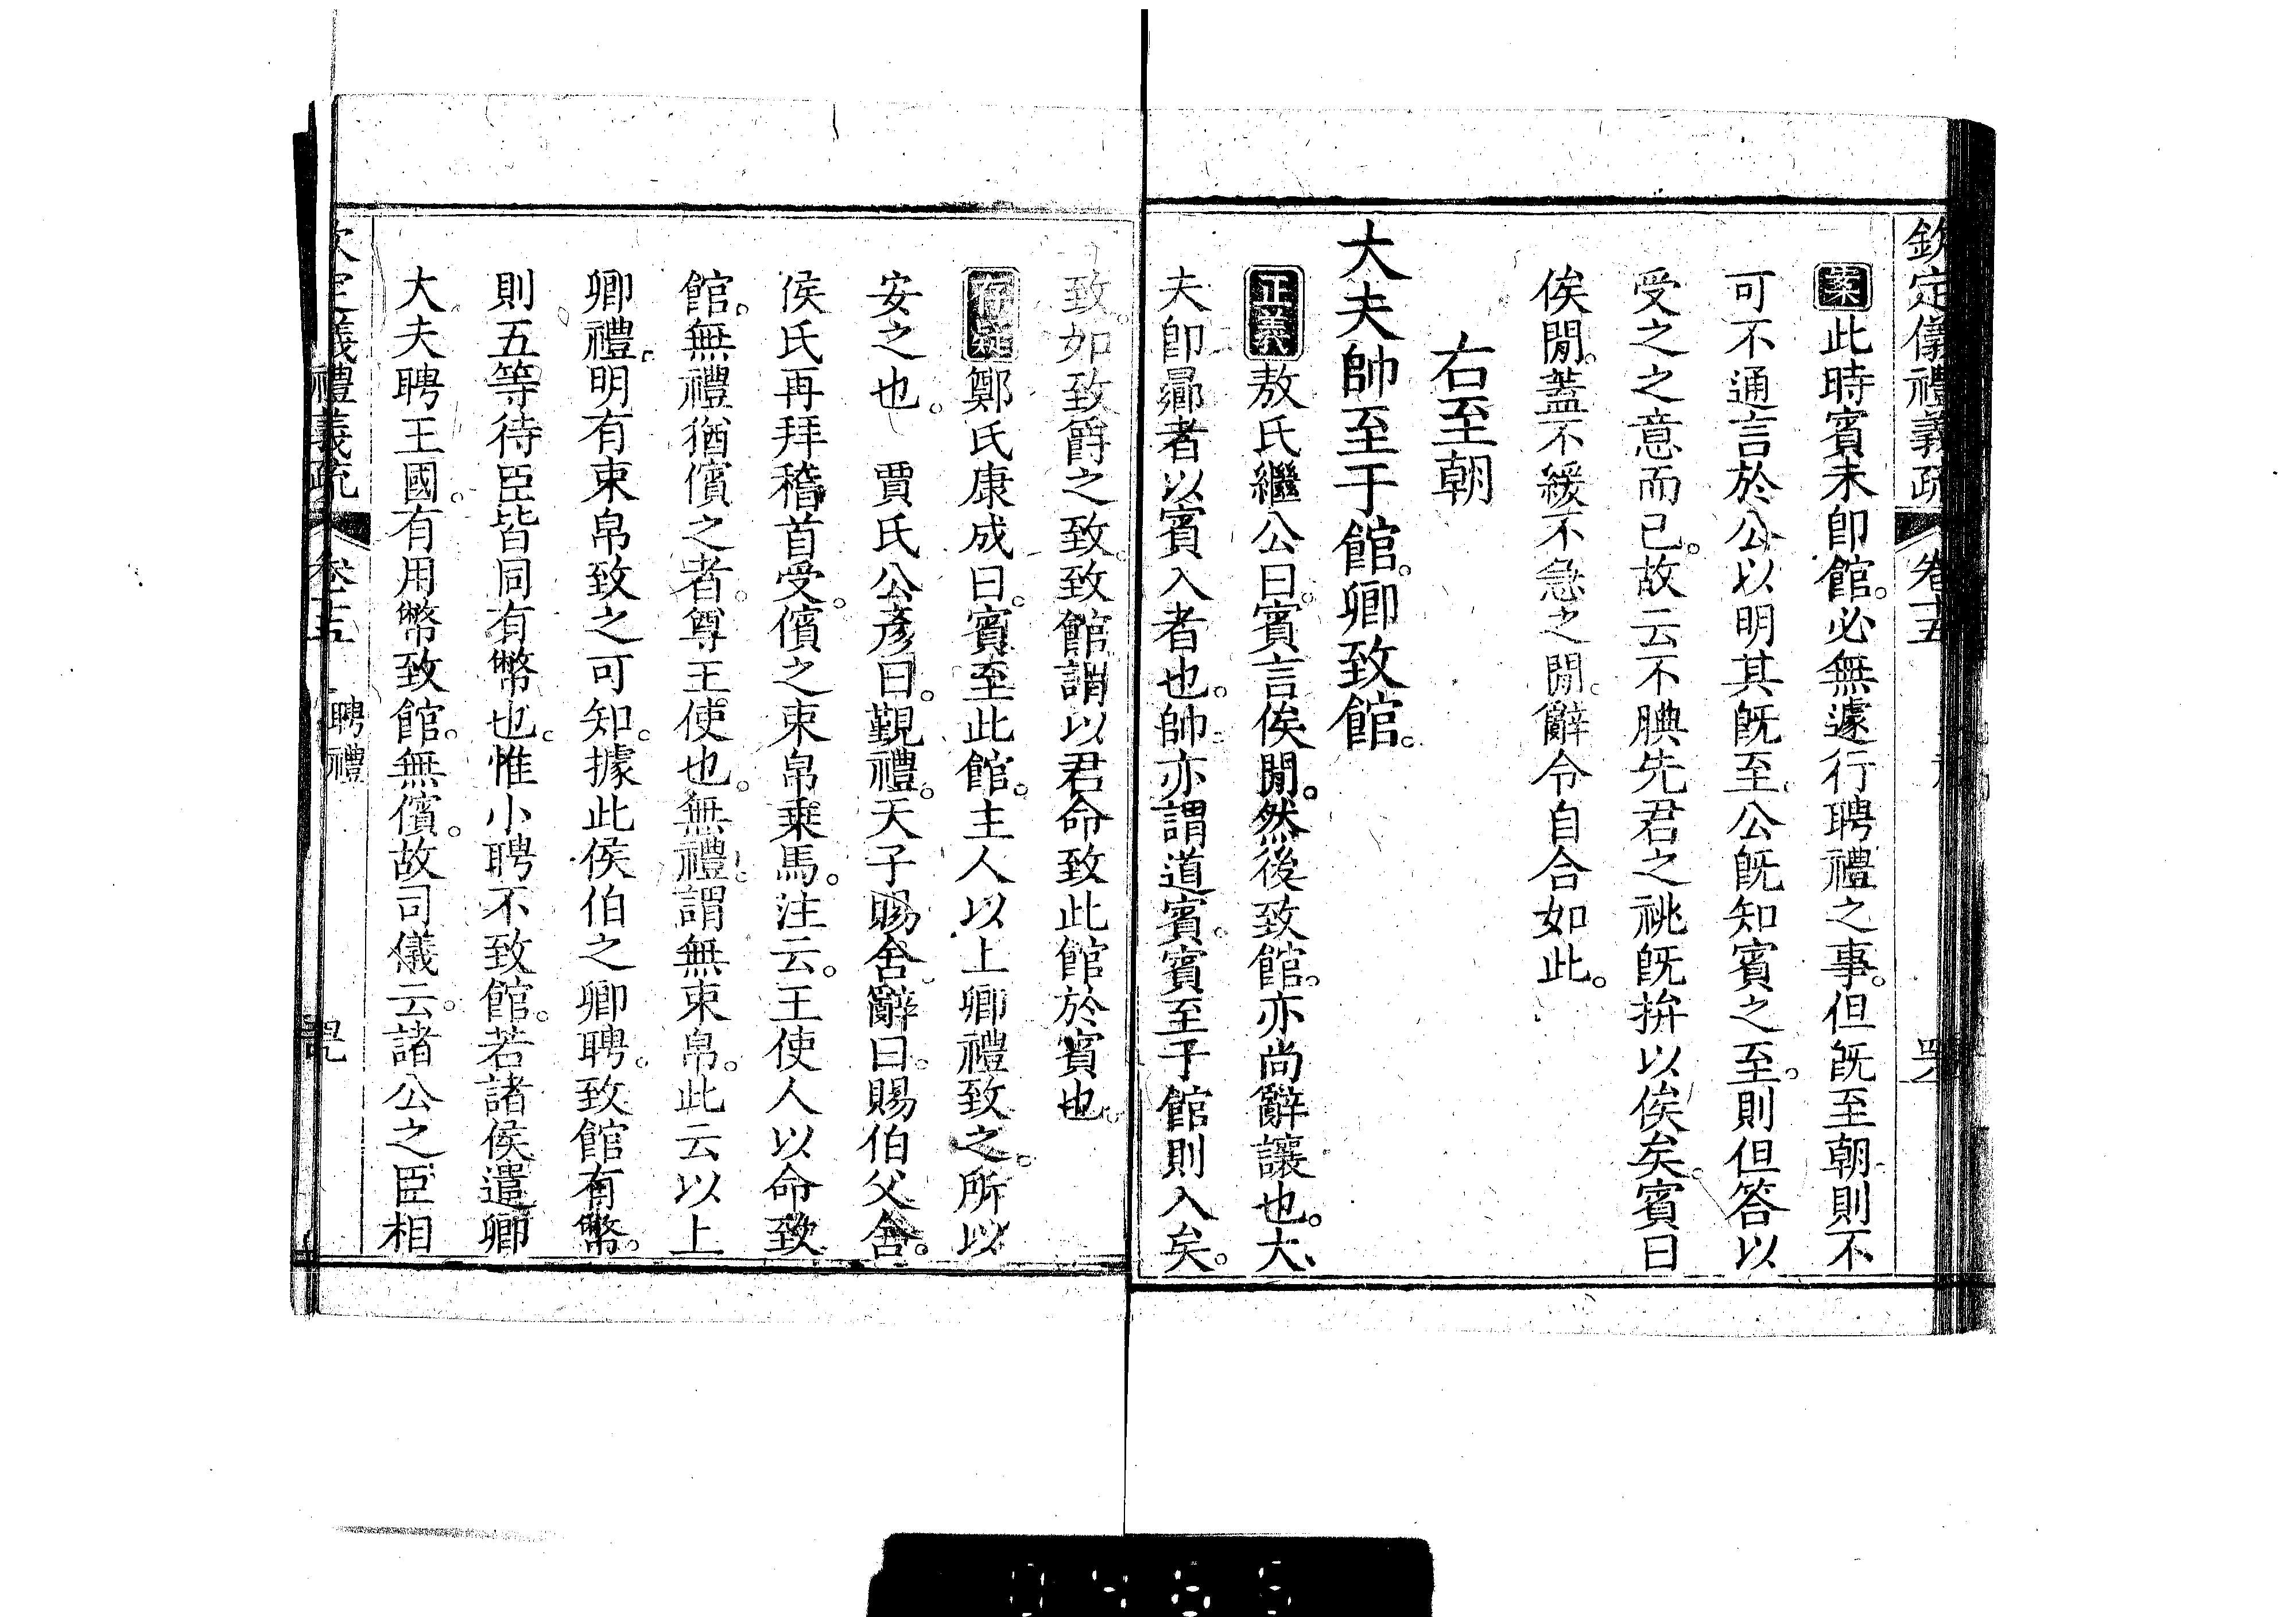 欽定儀禮義疏 卷十五
案此時賓未卽館。必無遽行聘禮之事。但旣至朝則不
可不通言於公以明其旣至公旣知賓之至。則但答以
受之之意而已。故云不腆先君之祧旣拚以俟矣。賓曰
俟閒。蓋不緩不急之閒。辭令自合如此。
右至朝
大夫帥至于館。卿致館。
正義敖氏繼公曰。賓言俟閒。然後致館。亦尚辭讓也。大
夫卽鄉者以賓入者也。帥亦謂道賓。賓至于館則入矣。
致。如致爵之致。致館謂以君命致此館於賓也。
存疑鄭氏康成曰。賓至此館。主人以上卿禮致之。所以
安之也。 賈氏公彥曰。覲禮。天子賜舍。辭曰。賜伯父舍。
侯氏再拜稽首受。儐之束帛乘馬。注云。王使人以命致
館。無禮猶儐之者。尊王使也。無禮。謂無束帛。此云以上
卿禮。明有束帛致之可知。據此侯伯之卿聘。致館有幣。
則五等待臣皆同有幣也。惟小聘不致館。若諸侯遣卿
大夫聘王國。有用幣致館。無儐。故司儀云。諸公之臣相
欽定儀禮義疏 卷十五 聘禮